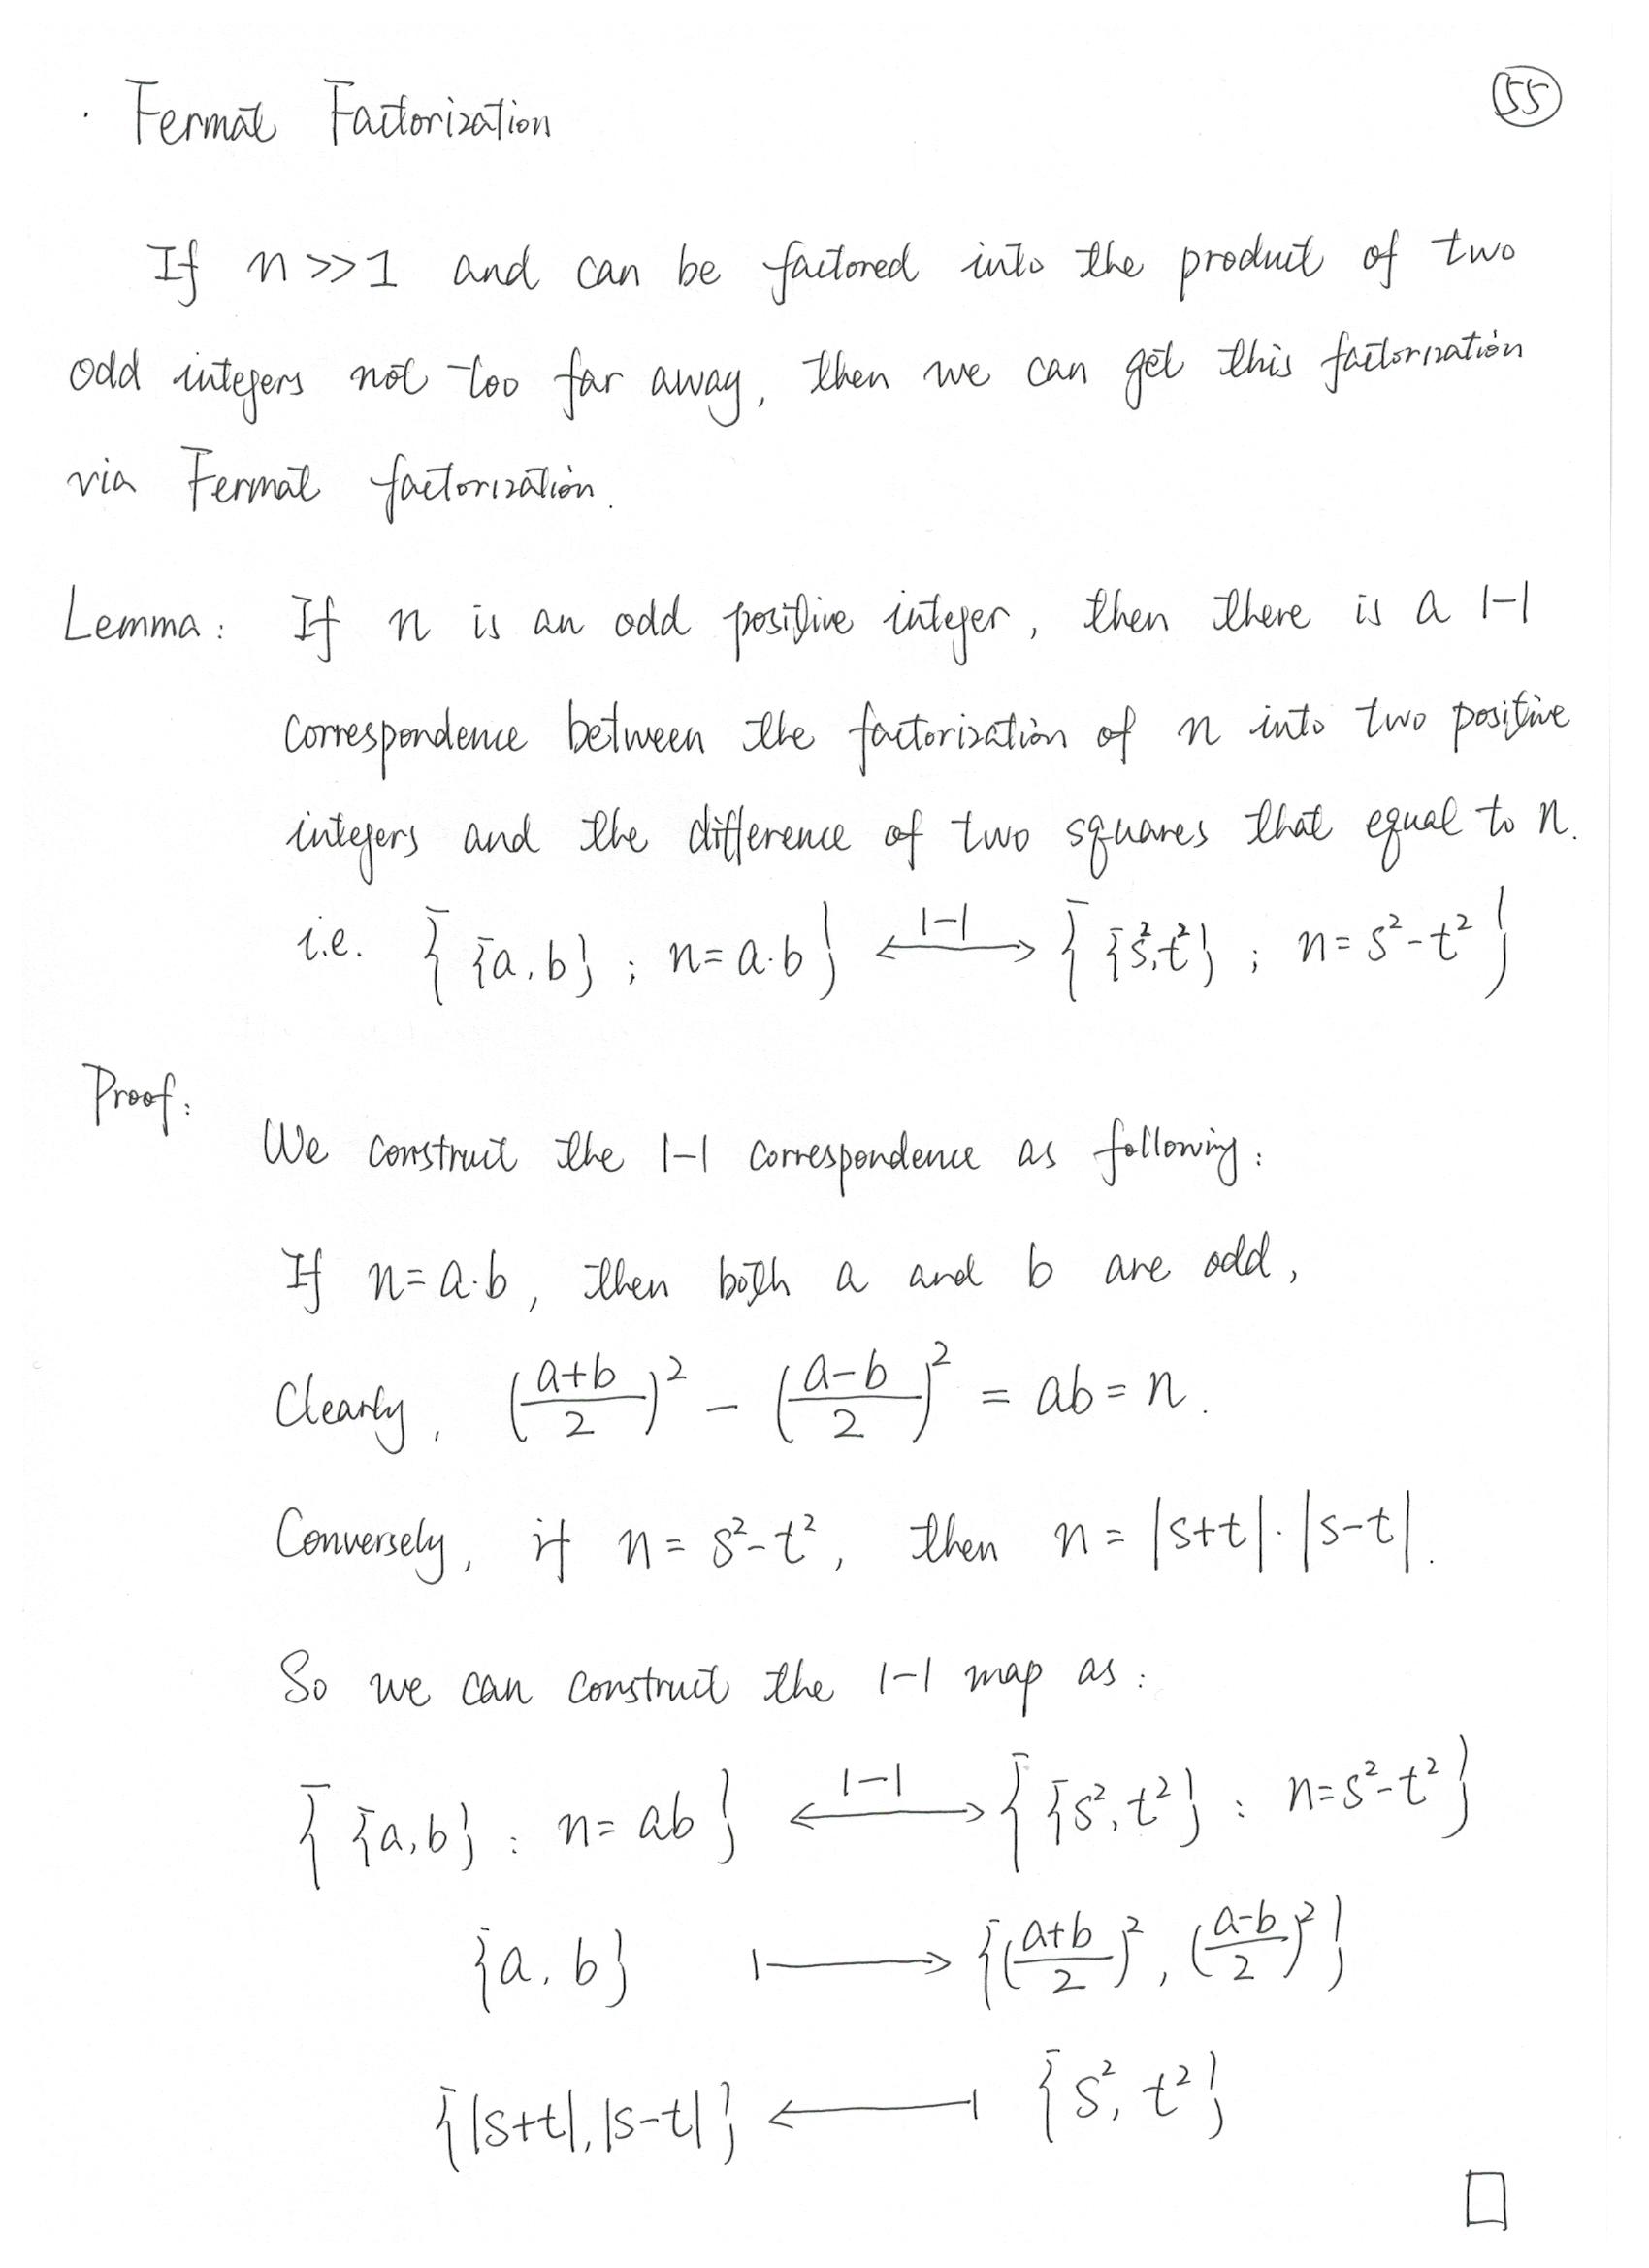 · Fermat Factorization
55
If n >> 1 and can be factored into the product of two
odd integers not too far away, then we can get this factorization
via Fermat factorization.
Lemma: If n is an odd positive integer, then there is a 1-1
correspondence between the factorization of n into two positive
integers and the difference of two squares that equal to n.
i.e. { {a, b} ; n = a·b } ⟷ 1-1 { {s², t²} ; n = s² - t² }
Proof:
We construct the 1-1 correspondence as following:
If n = a·b, then both a and b are odd,
Clearly, ((a+b)/2)² - ((a-b)/2)² = ab = n.
Conversely, if n = s² - t², then n = |s+t|·|s-t|.
So we can construct the 1-1 map as:
{ {a, b} : n = ab } ⟷ 1-1 { {s², t²} : n = s² - t² }
{a, b} ⟼ {((a+b)/2)², ((a-b)/2)²}
{|s+t|, |s-t|} ⟻ {s², t²}
□